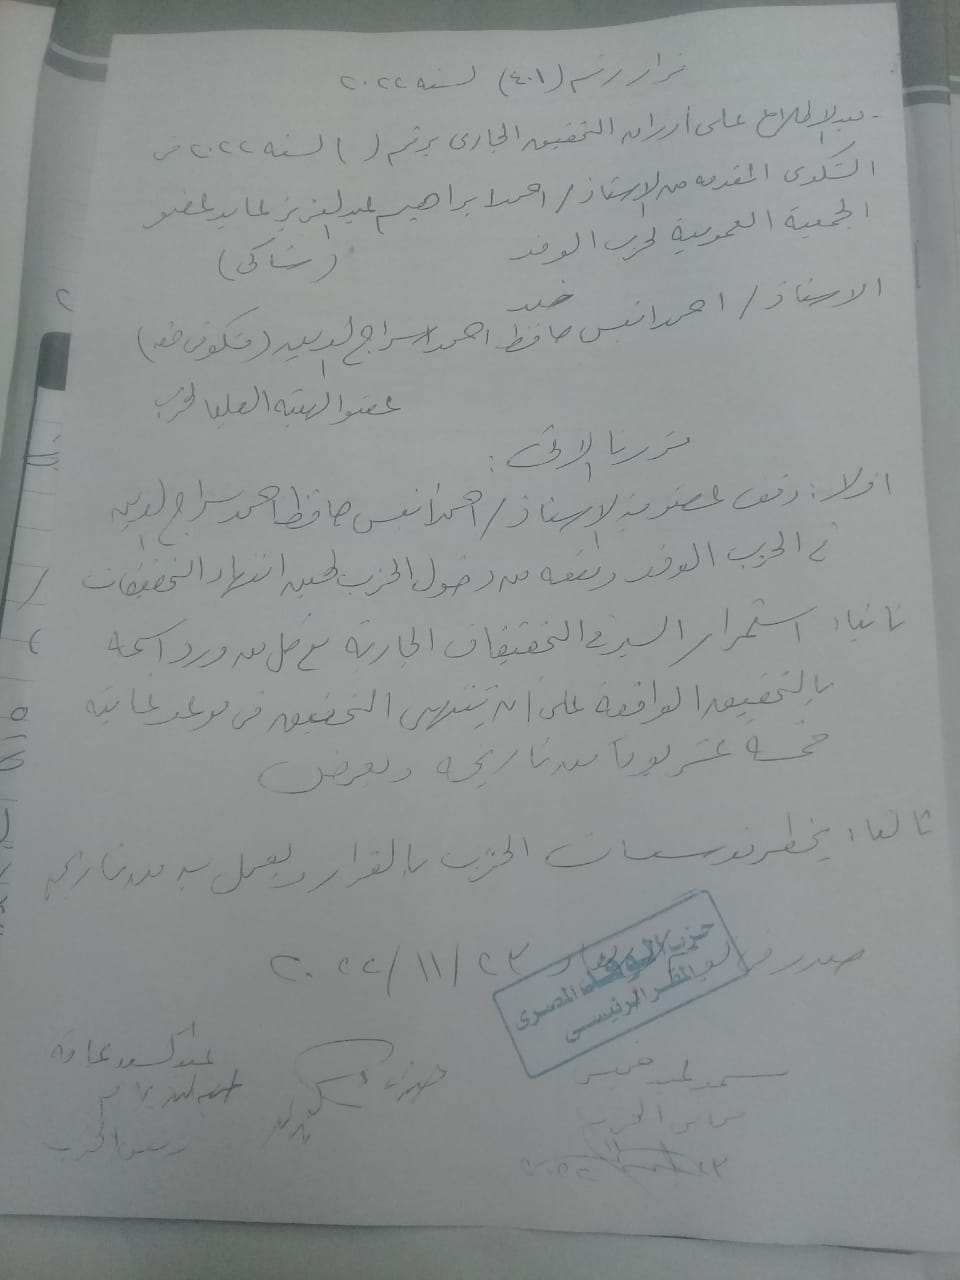 قرار رقم (٤٠١) لسنه ٢٠٢٢
- بعد الاطلاع على أوراق التحقيق الجارى برقم ( ) لسنه ٢٠٢٢ فى
الشكوى المقدمه من الاستاذ / احمد ابراهيم عبد العزيز عضو
الجمعية العمومية لحزب الوفد (شاكى)
ضد
الاستاذ / احمد انيس حافظ احمد سراج الدين (مشكو فى حقه)
عضو الهيئه العليا للحزب
قررنا الاتى :
اولا : وقف عضويه الاستاذ / احمد انيس حافظ احمد سراج الدين
فى الحزب الوفد ومنعه من دخول الحزب لحين انتهاء التحقيقات
ثانيا : استمرار السير فى التحقيقات الجاريه مع كل من ورد اسمه
بالتحقيق الواقعة على ان ينتهى التحقيق فى موعد غايته
خمسه عشر يوما من تاريخه ويعرض
ثالثا : يخطر مؤسسات الحزب بالقرار ويعمل به من تاريخه
صدر فى ٢٠٢٢/١١/٢٣
حزب الوفد المصرى
المقر الرئيسى
رئيس الحزب